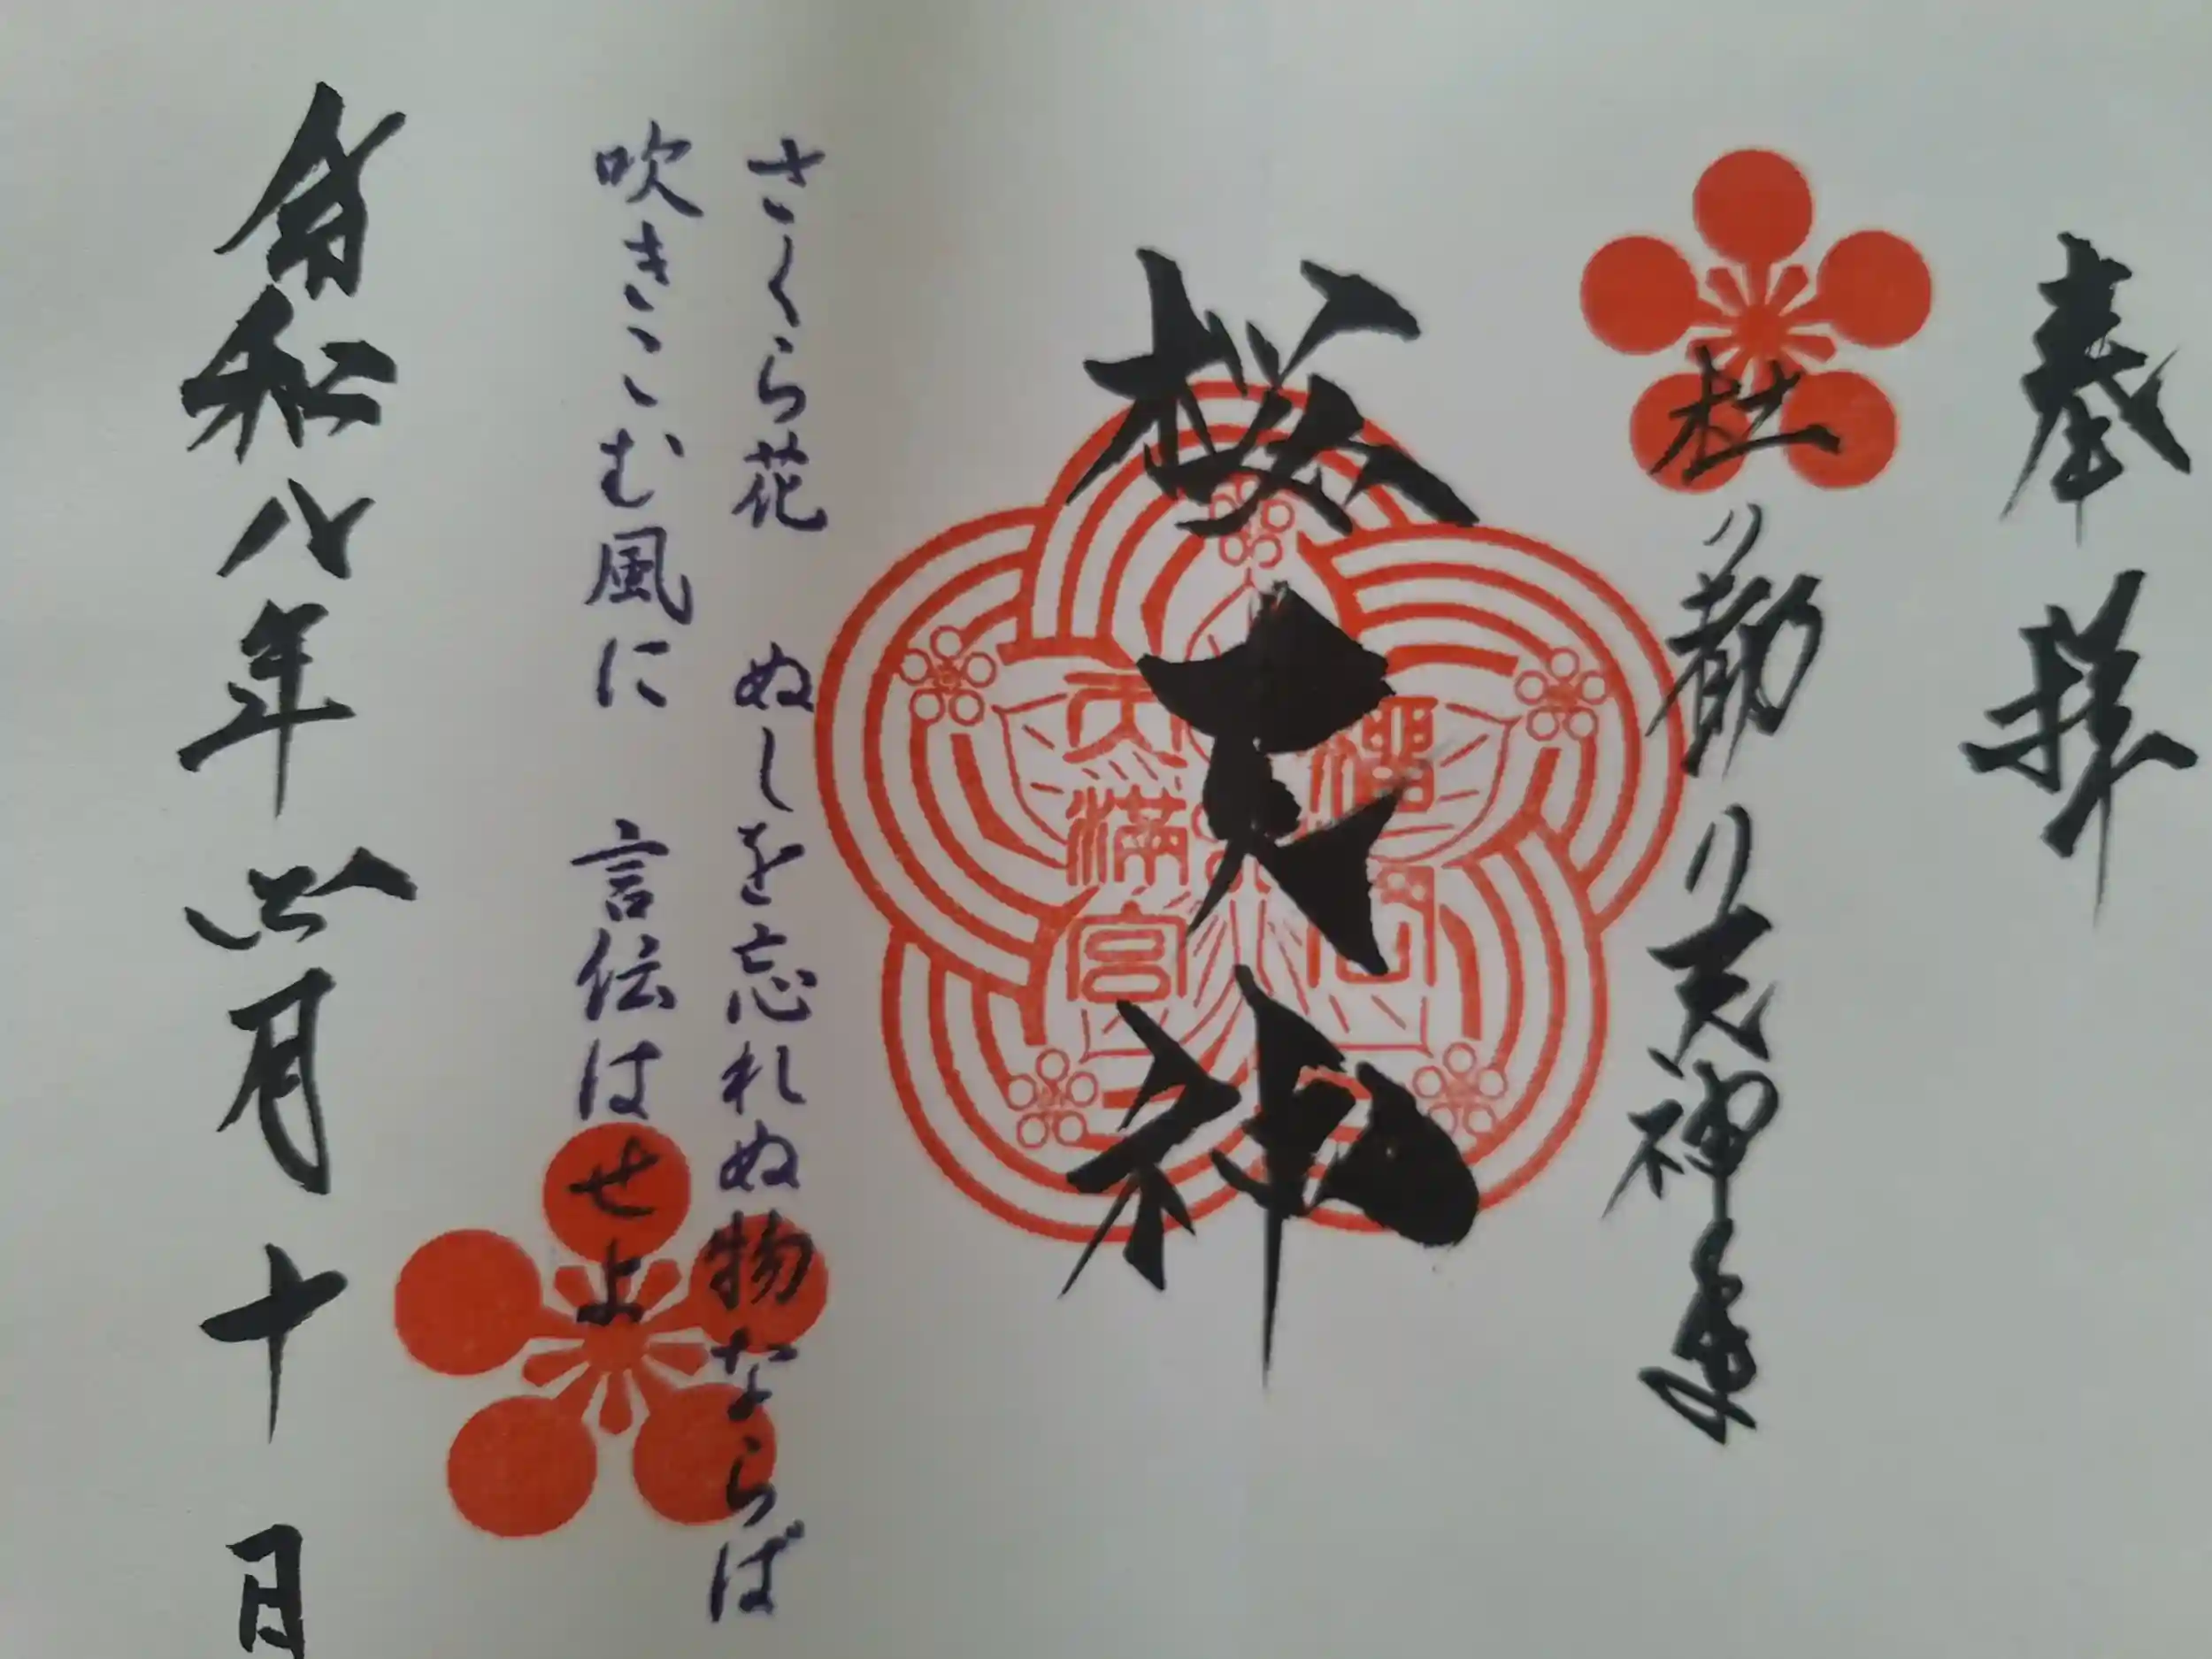 奉拝
桜天神
天満宮
さくら花 ぬしを忘れぬ物ならば
吹きこむ風に 言伝はせよ
令和八年四月十日